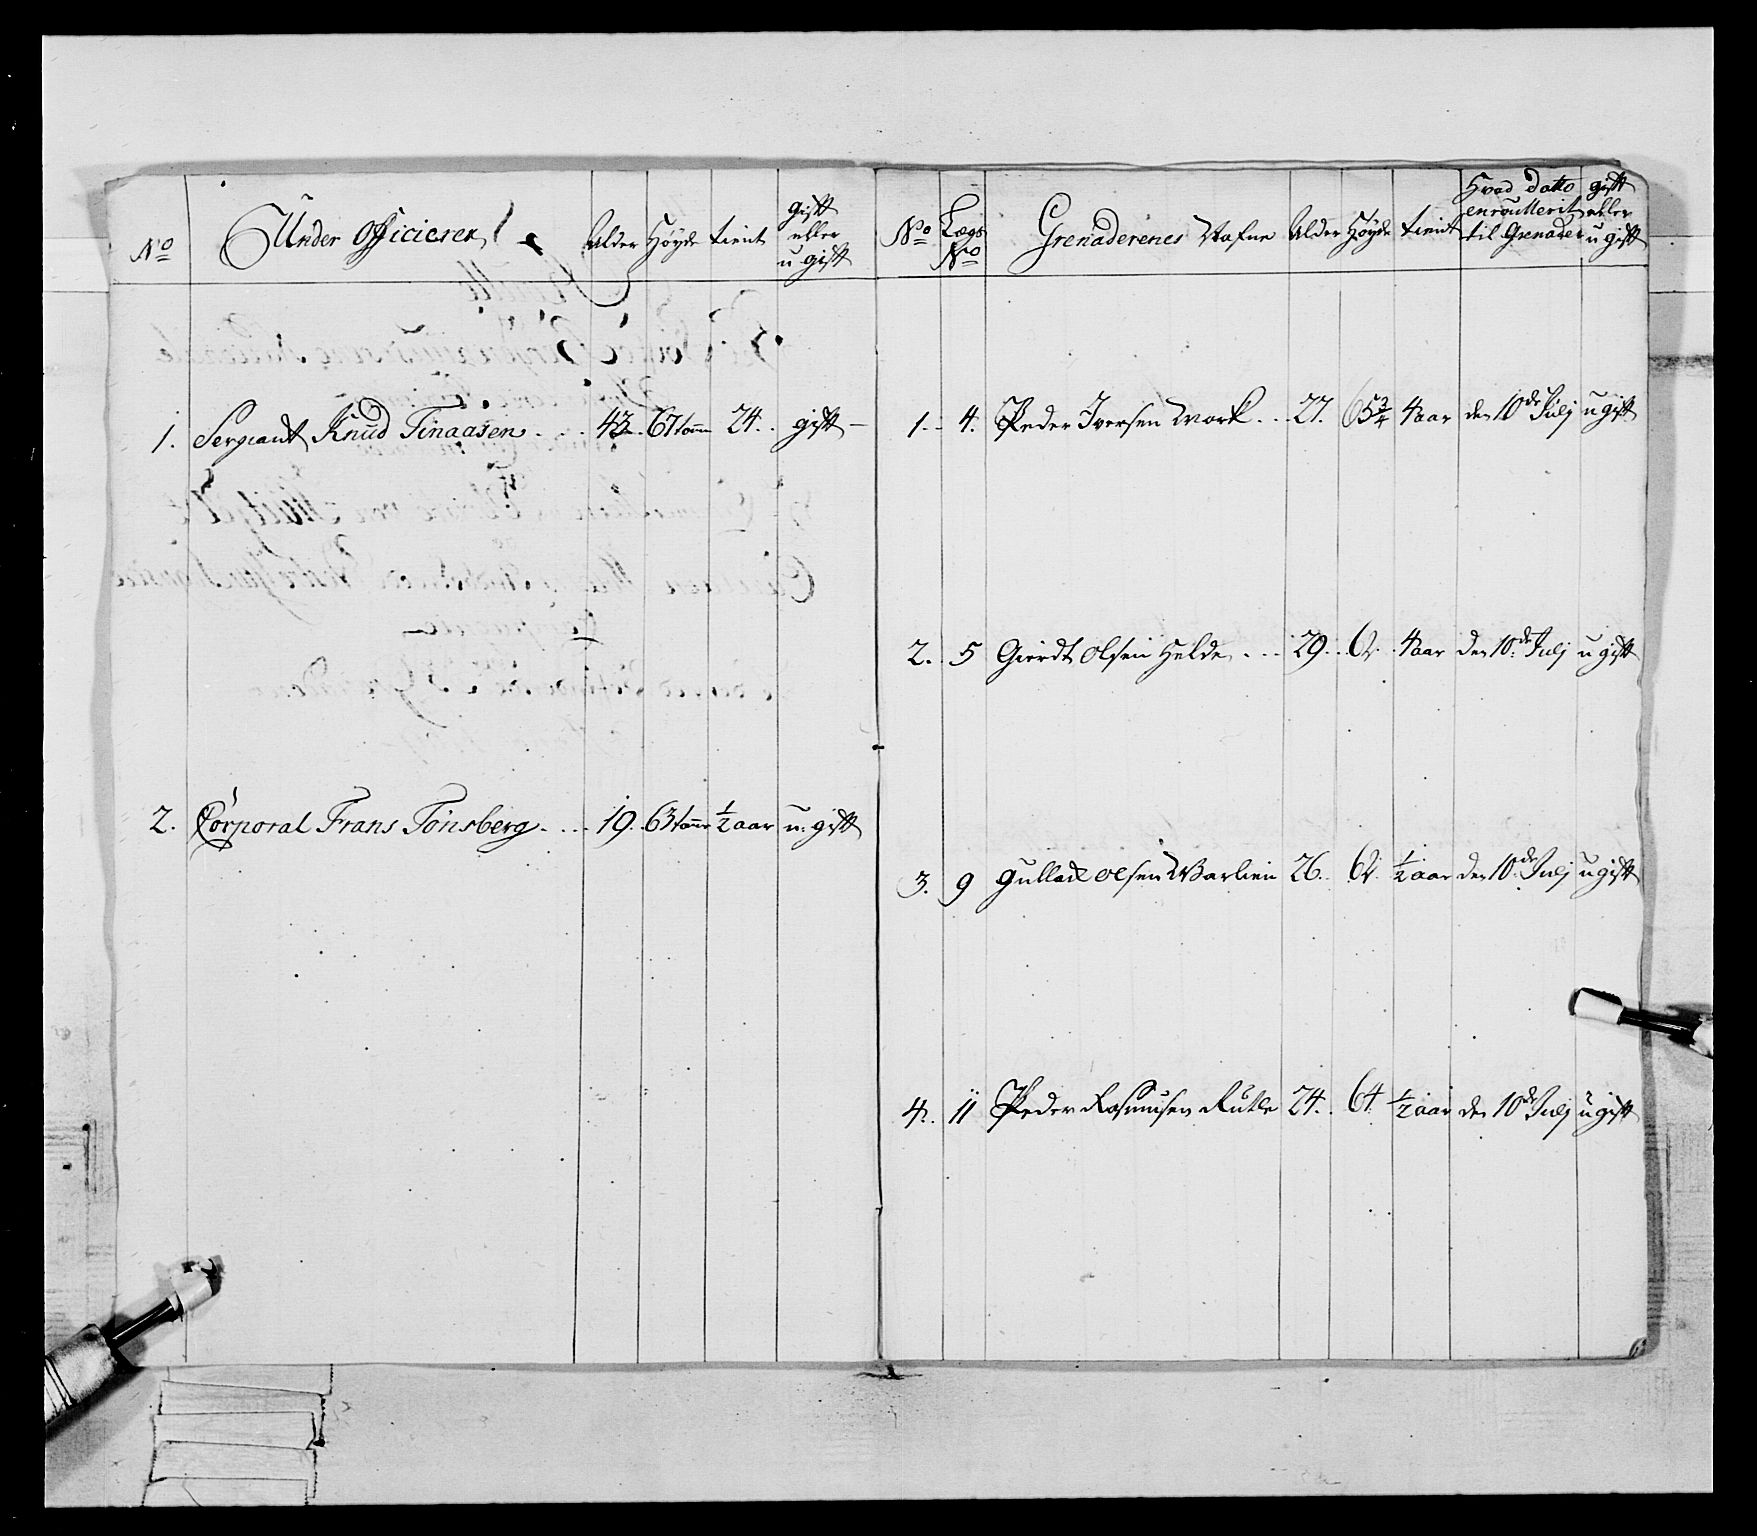 No Under Officierer Alder Høyde tient gift eller u gift
1. Sergiant Knud Finaasen 43. 67 tom 24. gift
2. Corporal Frans Tønsberg 19. 63 tom ½ aar u. gift
No Lægs No Grenaderenes Nafne Alder Høyde tient Hvad Datto enroullerit til Grenader gift eller u gift
1. 4. Peder Iversen Work 27. 65¾ 4 aar den 10de Julj u gift
2. 5 Gierdt Olsen Helde 29. 4 aar den 10de Julj u gift
3. 9 Gullack Olsen Warlien 26. ½ aar den 10de Julj u gift
4. 11 Peder Rasmusen Rutle 24. 64 ½ aar den 10de Julj u gift